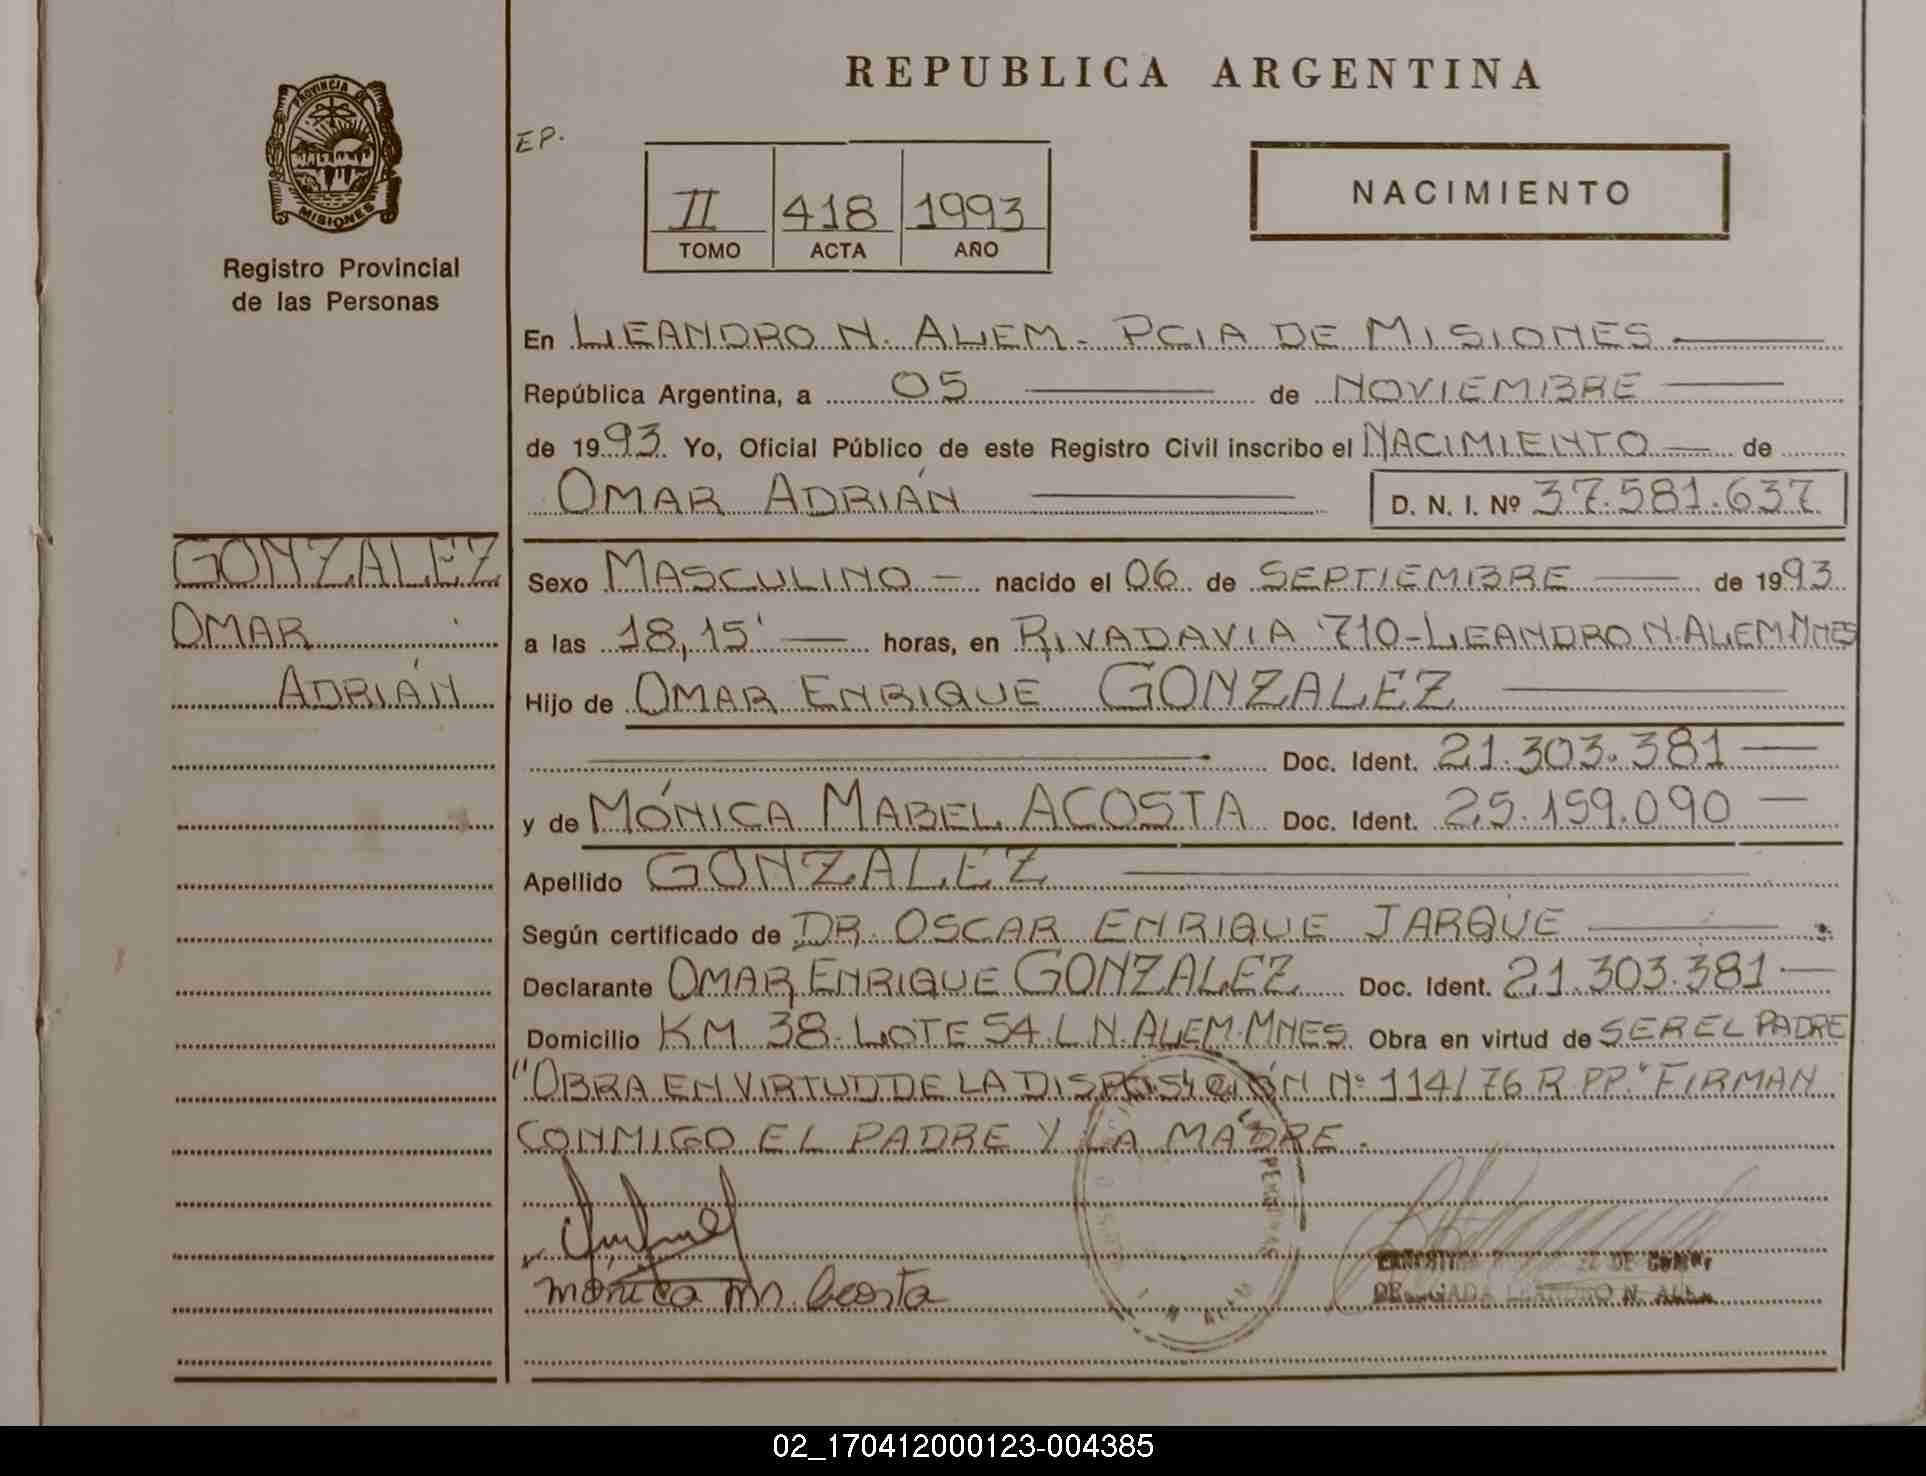 PROVINCIA DE
MISIONES
Registro Provincial
de las Personas
GONZALEZ
OMAR
ADRIÁN
REPUBLICA ARGENTINA
EP.
II 418 1993
TOMO ACTA AÑO
NACIMIENTO
En LEANDRO N. ALEM - PCIA DE MISIONES
República Argentina, a 05 de NOVIEMBRE
de 1993 Yo, Oficial Público de este Registro Civil inscribo el NACIMIENTO de
OMAR ADRIÁN D. N. I. Nº 37.581.637
Sexo MASCULINO - nacido el 06 de SEPTIEMBRE de 1993
a las 18,15' horas, en RIVADAVIA 710-LEANDRO N. ALEM MNES
Hijo de OMAR ENRIQUE GONZALEZ
Doc. Ident. 21.303.381
y de MÓNICA MABEL ACOSTA Doc. Ident. 25.159.090
Apellido GONZALEZ
Según certificado de DR. OSCAR ENRIQUE JARQUE
Declarante OMAR ENRIQUE GONZALEZ Doc. Ident. 21.303.381
Domicilio KM 38- LOTE 54. L N. ALEM-MNES Obra en virtud de SER EL PADRE
"OBRA EN VIRTUD DE LA DISPOSICIÓN Nº 114/76 R.PP." FIRMAN
CONMIGO EL PADRE Y LA MADRE.
Mónica M. Acosta
DELEGADA LEANDRO N. ALEM
02_170412000123-004385